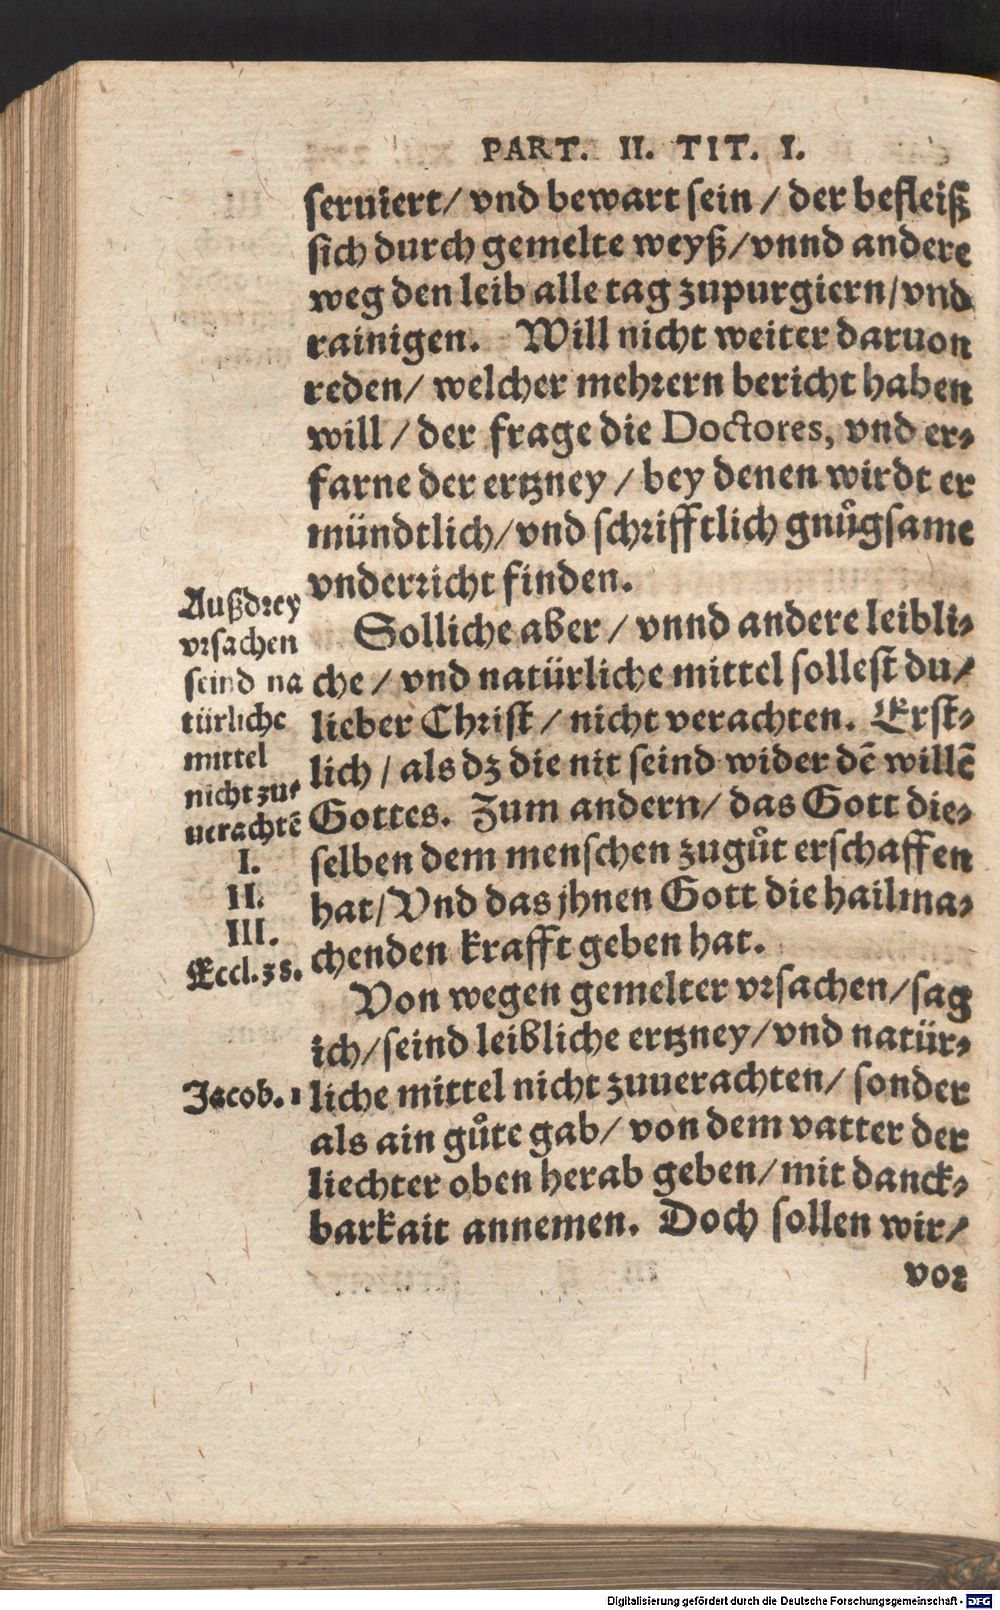 PART. II. TIT. I.
seruiert/ vnd bewart sein / der befleiß
sich durch gemelte weyß/vnnd andere
weg den leib alle tag zupurgiern/vnd
rainigen. Will nicht weiter daruon
reden/ welcher mehrern bericht haben
will / der frage die Doctores, vnd er⸗
farne der ertzney / bey denen wirdt er
mündtlich/vnd schrifftlich gnůgsame
vnderricht finden.
Solliche aber / vnnd andere leibli⸗
che / vnd natürliche mittel sollest du/
lieber Christ / nicht verachten. Erst⸗
lich / als dz die nit seind wider dē willē
Gottes. Zum andern/ das Gott die⸗
selben dem menschen zugůt erschaffen
hat/Vnd das jhnen Gott die hailma⸗
chenden krafft geben hat.
Von wegen gemelter vrsachen/sag
ich/seind leibliche ertzney/vnd natür⸗
liche mittel nicht zuuerachten/ sonder
als ain gůte gab/ von dem vatter der
liechter oben herab geben/mit danck⸗
barkait annemen. Doch sollen wir/
vor
Außdrey
vrsachen
seind na
türliche
mittel
nicht zu⸗
uerachtē
I.
II.
III.
Eccl. 38.
Jacob. 1
Digitalisierung gefördert durch die Deutsche Forschungsgemeinschaft - DFG